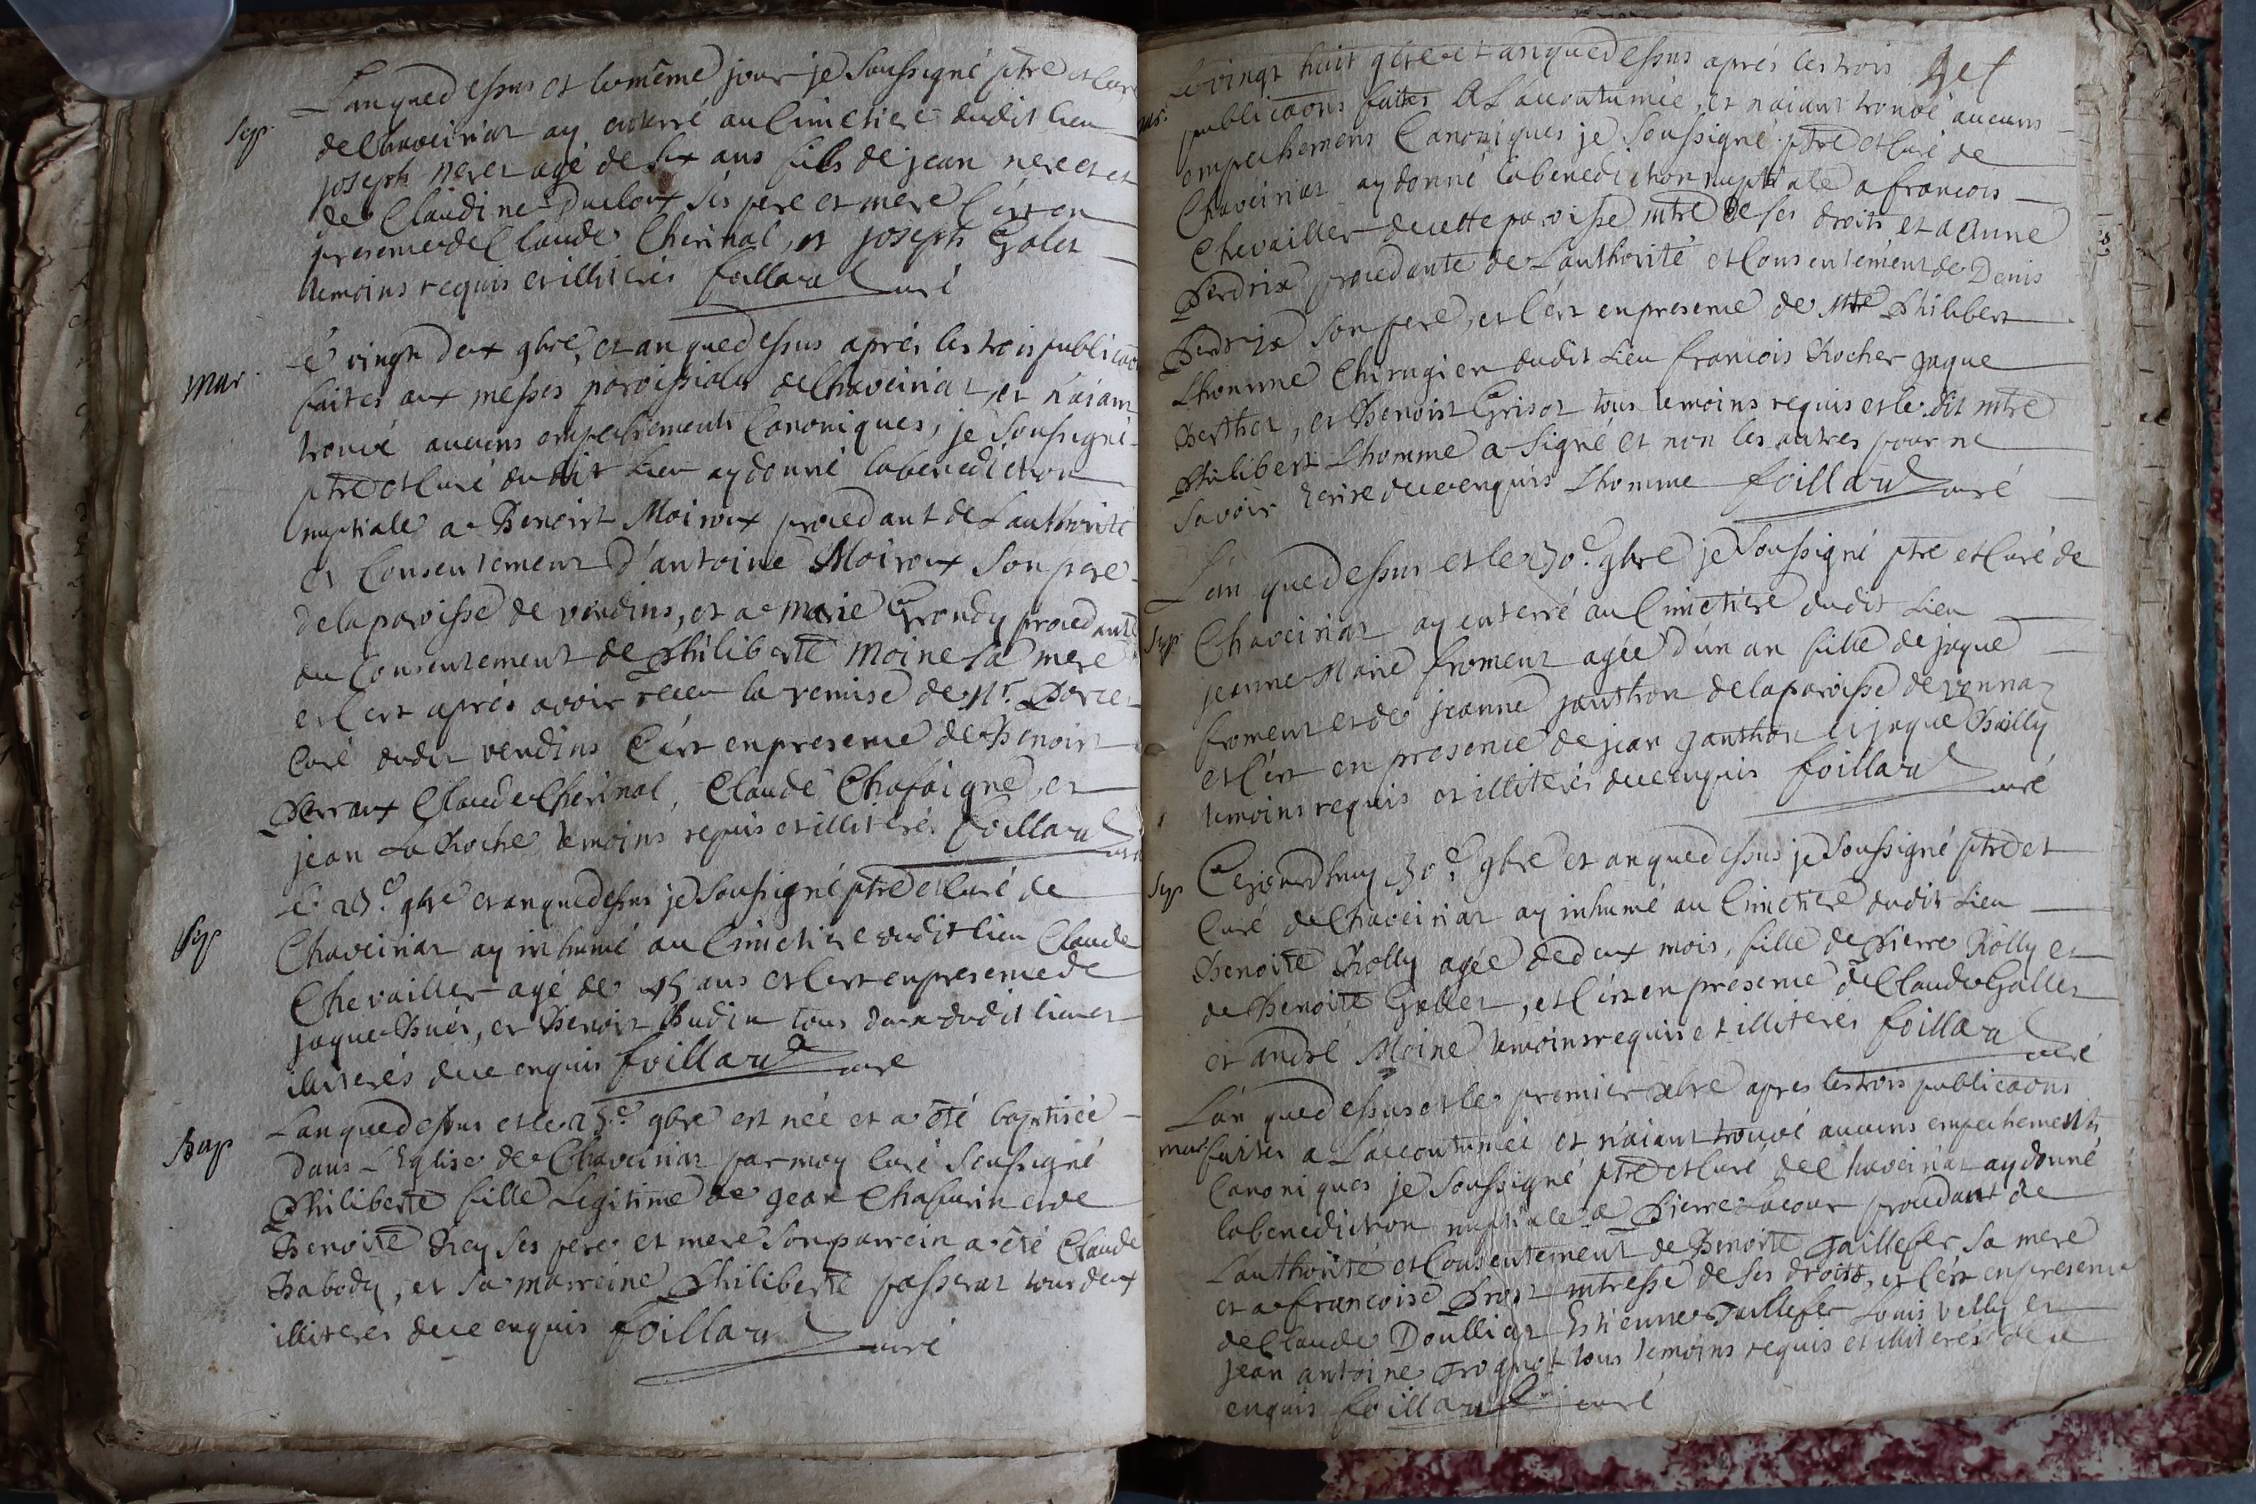 L'an que dessus et le même jour je soussigné ptre et curé
Sep.
de Chaveiriat ay enterré au Cimetiere dudit lieu
joseph neret agé de six ans fils de jean neret et
de Claudine Ducloux ses pere et mere C'est en
presence de Claude Cherinal, et joseph Galet
temoins requis et illiterés foillard curé
Mar.
le vingt deux 9bre, et an que dessus aprés les trois publicaons
faites aux messes paroissiales de Chaveiriat, et n'aiant
trouvé aucuns empechements Canoniques, je soussigné
ptre et Curé dudit Lieu ay donné la benediction
nuptiale a Benoist Moiroux procedant de l'authorité
et Consentement d'antoine Moiroux son pere
de la paroisse de vendins, et a marie Grondy procedante
du Consentement de Philiberte Moine sa mere
et C'est aprés avoir receu la remise de Mr.
Curé dudit vendins C'est en presence de Benoist
Perraux Claude Cherinal, Claude Chafaigne, et
jean La Roche temoins requis et illiterés foillard curé
Sep
le 25e. 9bre et an que dessus je soussigné ptre et Curé de
Chaveiriat ay inhumé au Cimetiere dudit lieu Claude
Chevailler agé de 45 ans et C'est en presence de
jaque Buer, et Benoist Budin tous deux dudit lieu et
illiterés de ce enquis foillard curé
Bap
L'an que dessus et le 25e. 9bre est née et a été baptisée
dans L'Eglise de Chaveiriat par moy Curé soussigné
Philiberte fille Legitime de jean Chassurin et de
Benoite Rey ses pere et mere son parrein a été Claude
Babody, et sa marreine Philiberte passerat tous deux
illiteres de ce enquis foillard curé
Le vingt huit 9bre et an que dessus aprés les trois
mar.
publicaons faites a L'accoutumée, et n'aiant trouvé aucuns
empechemens Canoniques je soussigné ptre et Curé de
Chaveiriat ay donné la benediction nuptiale a francois
Chevailler de cette paroisse mtre de ses droits et a Anne
Perdrix procedante de L'authorité et Consentement de Denis
Perdrix son pere, et C'est en presence de Mtre Philibert
Lhomme Chirugien dudit Lieu francois Rocher jaque
Berthet, et Benoist Grisot tous temoins requis et le dit mtre
Philibert Lhomme a signé et non les autres pour ne
savoir Ecrire de ce enquis Lhomme foillard curé
L'an que dessus et le 30e. 9bre je soussigné ptre et Curé de
Sep.
Chaveiriat ay enterré au Cimetiere dudit Lieu
jeanne Marie froment agée d'un an fille de jaque
froment et de jeanne janthon de la paroisse de vonnaz
et C'est en presence de jean janthon et jaque Bailly
temoins requis et illiterés de ce enquis foillard curé
Sep
Cejourdhuy 30e. 9bre et an que dessus je soussigné ptre et
Curé de Chaveiriat ay inhumé au Cimetiere dudit Lieu
Benoite Rolly agée de deux mois, fille de Pierre Rolly et
de Benoite Gallet, et C'est en presence de Claude Gallet
et andré Moine temoins requis et illiterés foillard curé
L'an que dessus et le premier xbre apres les trois publicaons
mar
faites a L'accoutumée et n'aiant trouvé aucuns empechements
Canoniques je soussigné ptre et Curé de Chaveiriat ay donné
la benediction nuptiale a Pierre Lacour procedant de
L'authorité et Consentement de Benoite Taillefer sa mere
et a francoise Prost mtresse de ses droits, et C'est en presence
de Claude Doulliat Estienne Taillefer Louis velly et
jean antoine Trognot tous temoins requis et illiterés de ce
enquis foillard curé